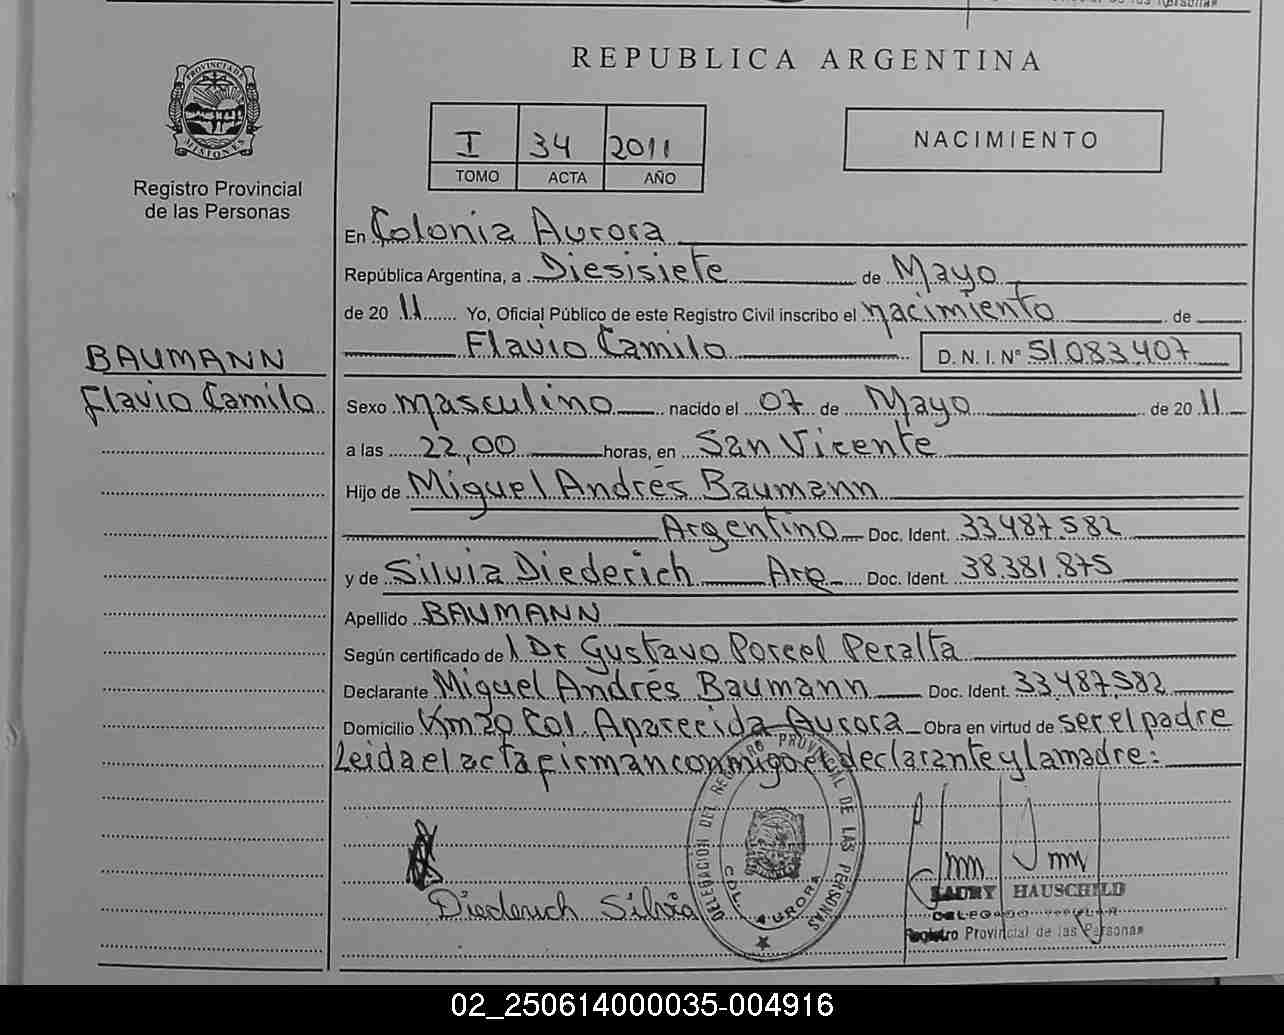 REPUBLICA ARGENTINA
PROVINCIA DE
MISIONES
Registro Provincial
de las Personas
I 34 2011
TOMO ACTA AÑO
NACIMIENTO
En Colonia Aurora
República Argentina, a Diesisiete de Mayo
de 20 11 Yo, Oficial Público de este Registro Civil inscribo el nacimiento de
Flavio Camilo D. N. I. N° 51.083.407
BAUMANN
Flavio Camilo
Sexo masculino nacido el 07 de Mayo de 20 11
a las 22,00 horas, en San Vicente
Hijo de Miguel Andrés Baumann
Argentino Doc. Ident. 33.487.582
y de Silvia Diederich Arg Doc. Ident. 38.381.875
Apellido BAUMANN
Según certificado del Dr Gustavo Porcel Peralta
Declarante Miguel Andrés Baumann Doc. Ident. 33.487.582
Domicilio Km 20 Col. Aparecida Aurora Obra en virtud de ser el padre
Leida el acta firman conmigo el declarante y la madre:
DELEGACION DEL REGISTRO PROVINCIAL DE LAS PERSONAS
COL. AURORA
Diederich Silvia
LAURY HAUSCHILD
DELEGADO TITULAR
Registro Provincial de las Personas
02_250614000035-004916